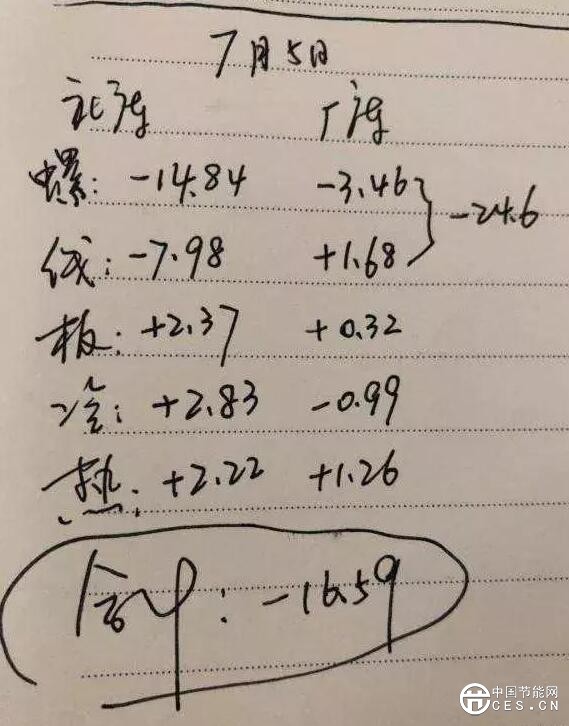 7月5日
社库 厂库
螺: -14.84 -3.46
线: -7.98 +1.68
-24.6
板: +2.37 +0.32
冷: +2.83 -0.99
热: +2.22 +1.26
合计: -16.59
中国节能网
CES.CN